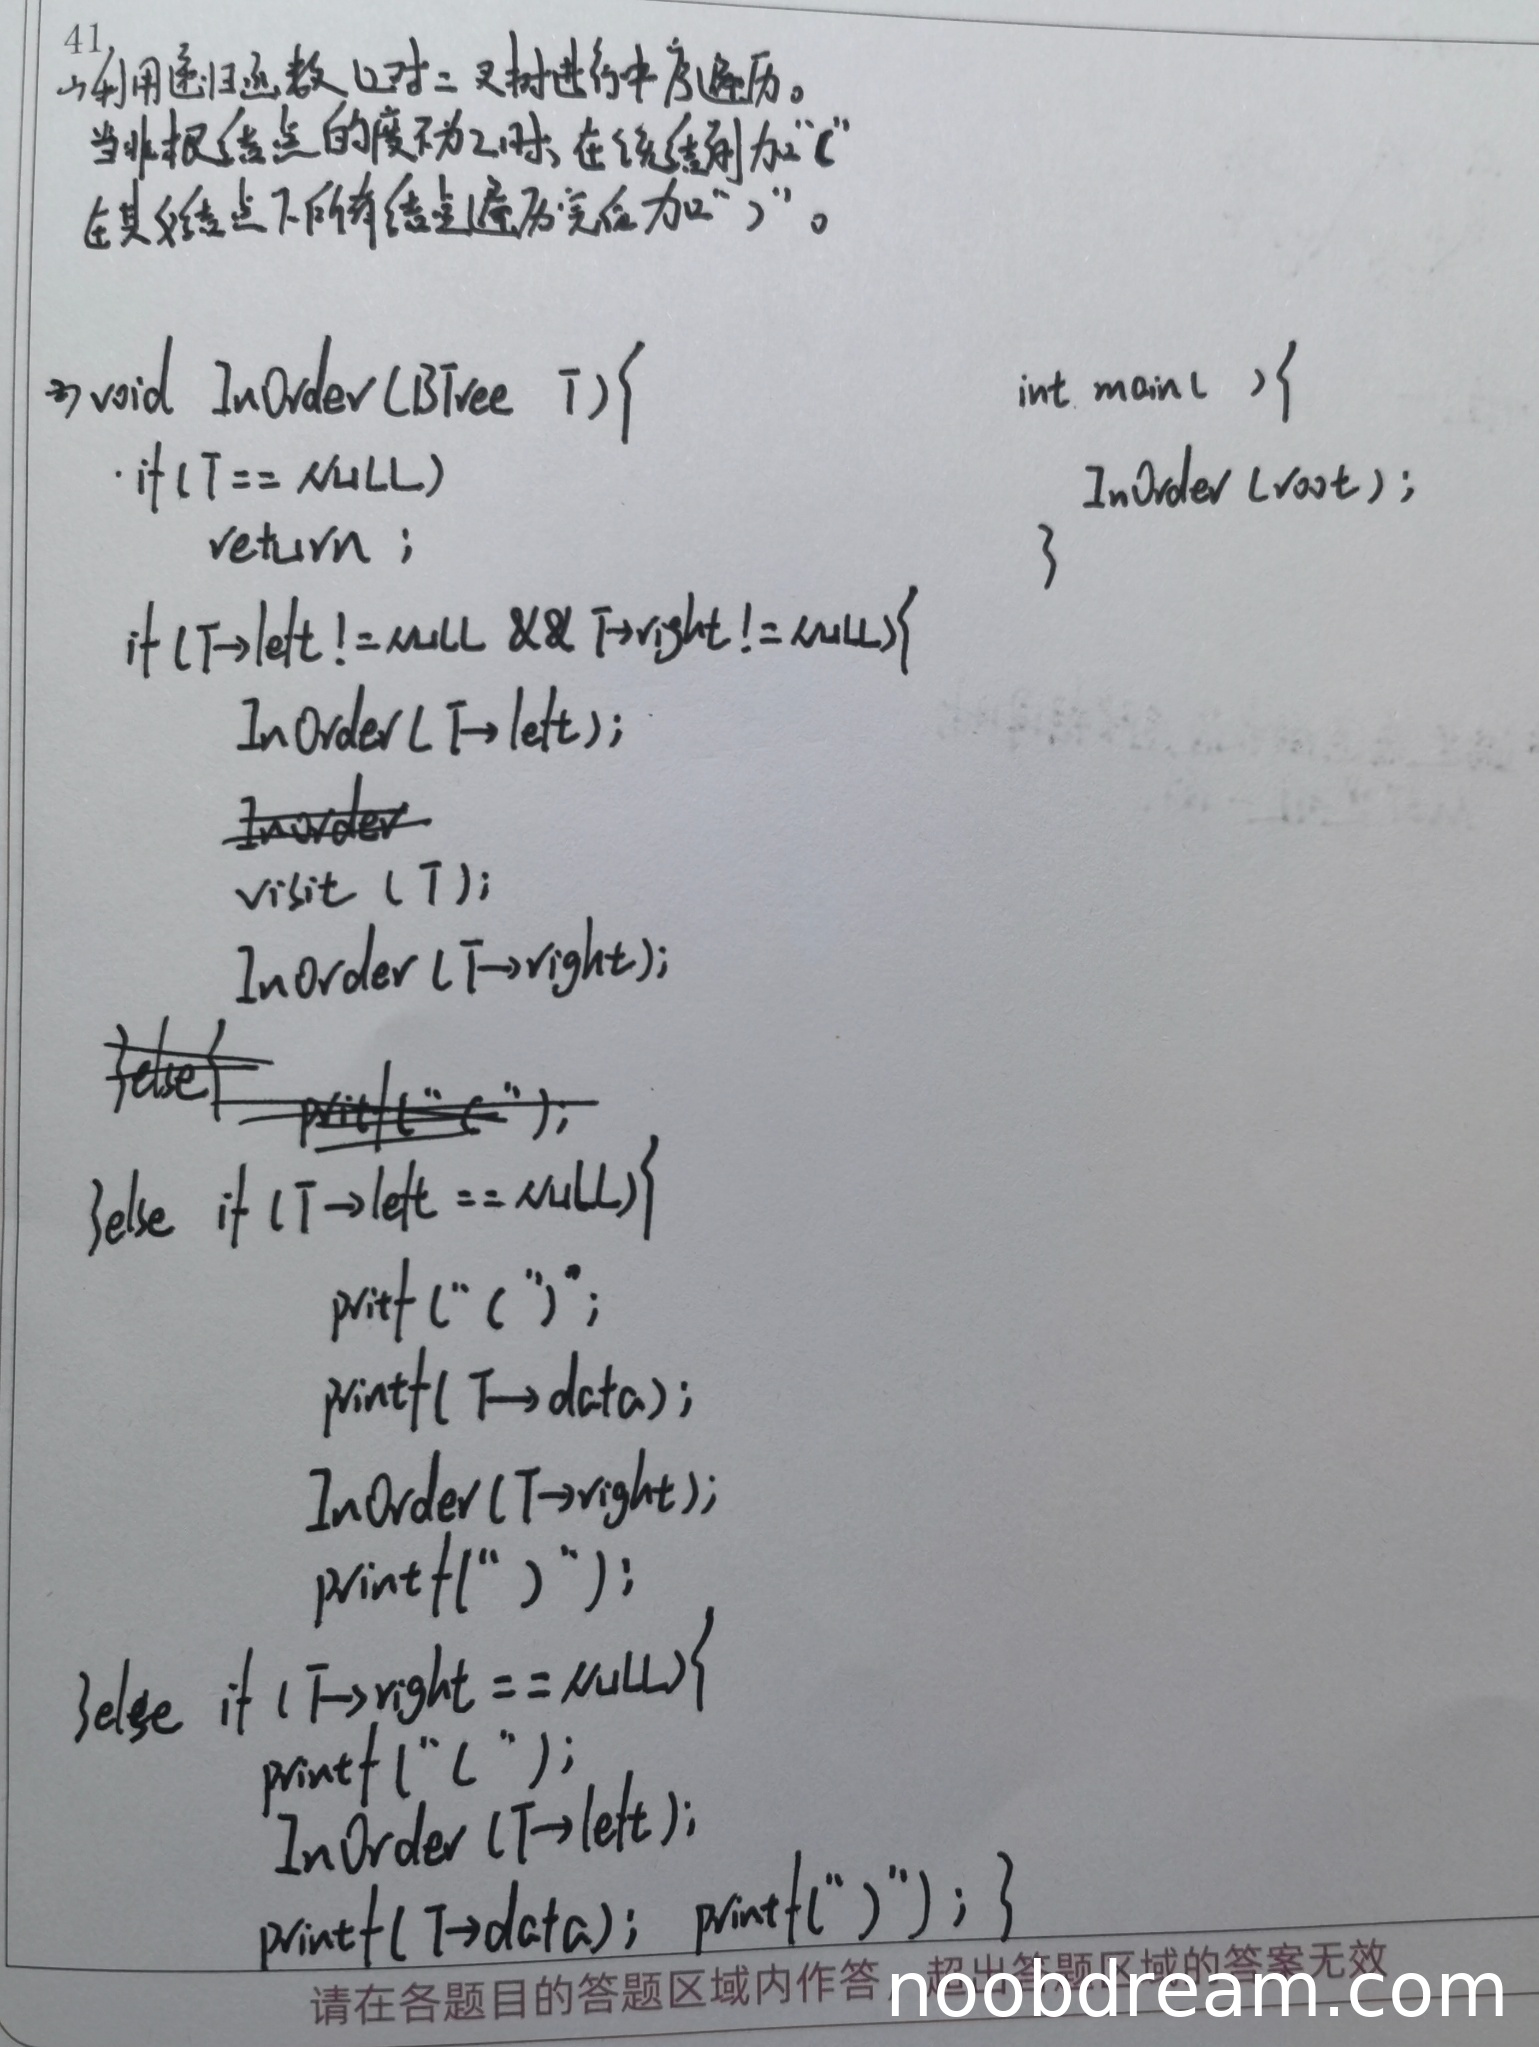 41
(1) 利用递归函数以对二叉树进行中序遍历。
当非根结点的度不为2时,在该结前加"("
在其父结点下所有结点遍历完后加")"。
(2) void InOrder(BTree T){
if(T == NULL)
return ;
if(T→left != NULL && T→right != NULL){
InOrder(T→left);
Inorder
visit (T);
InOrder(T→right);
}else{
prit("(");
}else if (T→left == NULL){
pritf("(");
printf(T→data);
InOrder(T→right);
printf(")");
}else if (T→right == NULL){
printf("(");
InOrder(T→left);
printf(T→data); printf(")"); }
int main( ){
InOrder(root);
}
请在各题目的答题区域内作答,超出答题区域的答案无效
noobdream.com